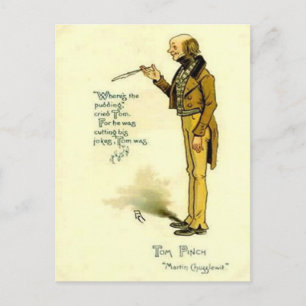 "Where's the
pudding,"
cried Tom.
For he was
cutting his
jokes, Tom was.
Tom Pinch
"Martin Chuzzlewit"